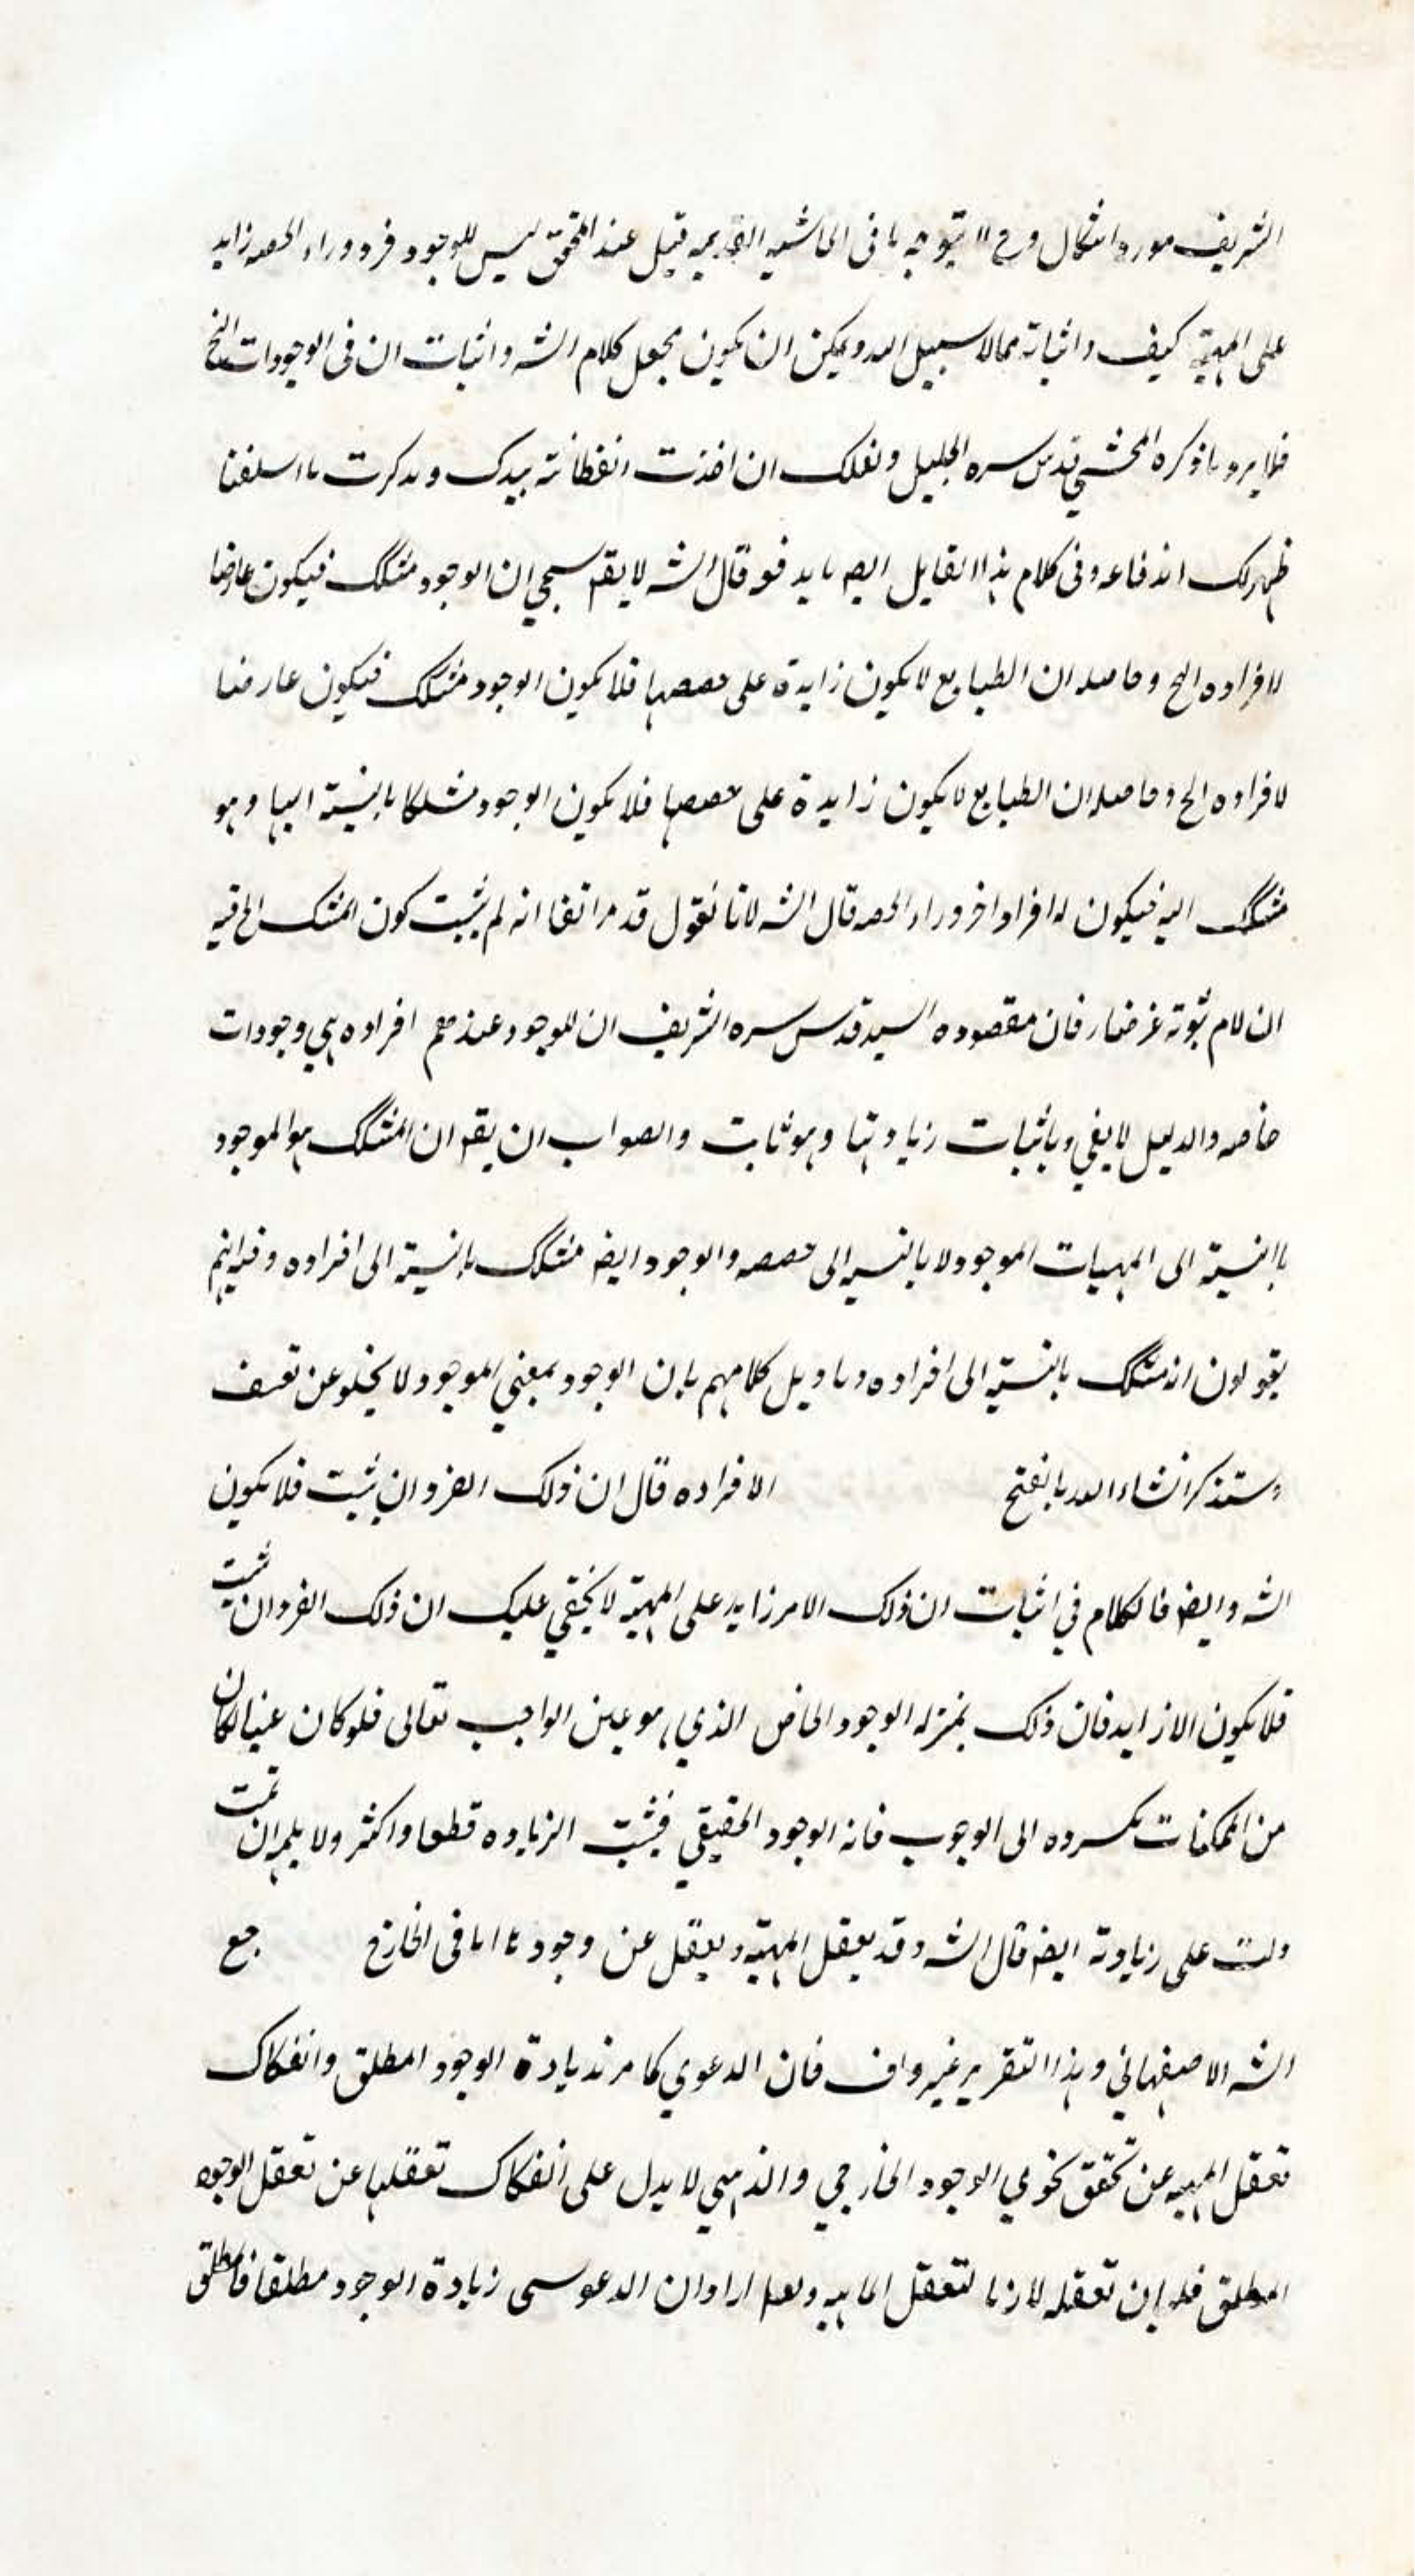 الشريف مورد اشكال وح لا يتوجه ما فى الحاشيه القديمه قيل عند المحقق ليس للوجود فرد وراء الحصه زايد
على المهية كيف واثباته مما لا سبيل اليه ويمكن ان يكون محصل كلام الشه واثبات ان فى الوجودات الخ
فلا يرد ما ذكره المحشي قدس سره الجليل ولعلك ان اخذت الفطانة بيدك وتذكرت ما اسلفنا
ظهر لك اندفاعه وفى كلام هذا القايل ايضه ما يدفعه قال الشه لا يقه سيجي ان الوجود مشكك فيكون عارضا
لافراده الخ وحاصله ان الطبايع لا يكون زايدة على حصصها فلا يكون الوجود مشكك فيكون عارضا
لافراده الخ وحاصله ان الطبايع لا يكون زايدة على حصصها فلا يكون الوجود مشككا بالنسبة اليها وهو
مشكك اليه فيكون له افراد اخر وراء الحصه قال الشه لانا نقول قد مر انفا انه لم يثبت كون المشكك الخ فيه
ان لام ثبوته غر ضار فان مقصوده السيد قدس سره الشريف ان للوجود عندهم افراده هي وجودات
خاصه والدليل لا يفي باثبات زيادتها وهو ثابت والصواب ان يقه ان المشكك هو الموجود
بالنسبة الى المهيات الموجود لا بالنسبه الى حصصه والوجود ايضه مشكك بالنسبة الى افراده وفيه انهم
يقولون انه مشكك بالنسبة الى افراده وتاويل كلامهم بان الوجود بمعني الموجود لا يخلو عن تعسف
وستذكر انشاء الله بالفتح الافراده قال ان ذلك الفرد ان يثبت فلا يكون
الشه وايضه فالكلام في اثبات ان ذلك الامر زايد على المهية لا يخفي عليك ان ذلك الفرد ان ثبت
فلا يكون الا زايد فان ذلك بمنزله الوجود الخاص الذي هو عين الواجب تعالى فلو كان عينا لكان
من الممكنات بمسروده الى الوجوب فانه الوجود الحقيقي فيثبت الزياده قطعا واكثر ولا يلهم ان تمت
دلت على زيادته ايضه قال الشه وقد يعقل المهية ويغفل عن وجودها اما فى الخارج جمع
الشه الاصفهاني وهذا التقرير غير واف فان الدعوي كما مر ند يادة الوجود المطلق وانفكاك
تعقل المهيه عن تحقق نحوي الوجود الخارجي والذهني لا يدل على انفكاك تعقلها عن تعقل الوجود
المطلق فلم ان تعقله لازما لتعقل الماهيه ولعله اراد ان الدعوى زيادة الوجود مطلقا فالمطلق